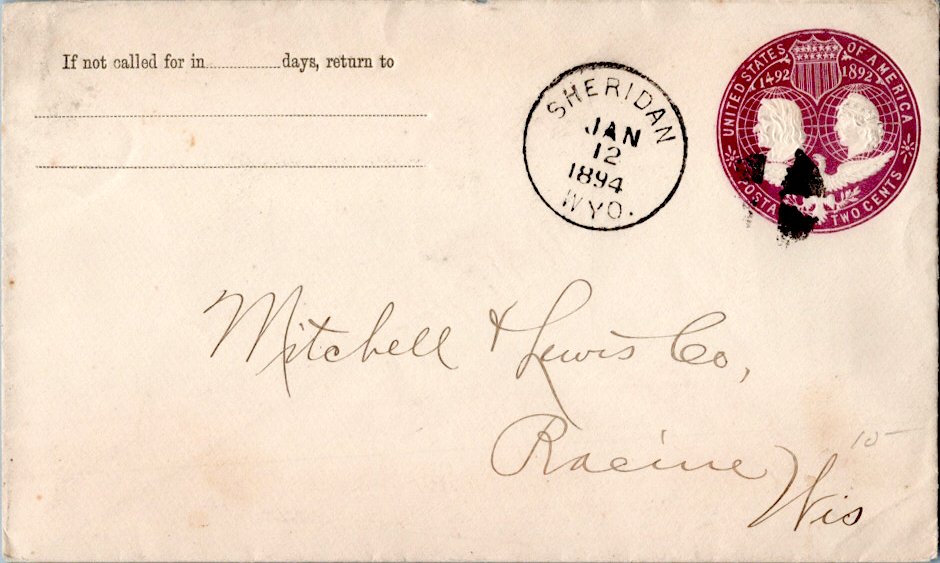 If not called for in ............ days, return to
SHERIDAN
JAN
12
1894
WYO.
UNITED STATES OF AMERICA
1492 1892
POSTA TWO CENTS
Mitchell & Lewis Co,
Racine
Wis
10 –